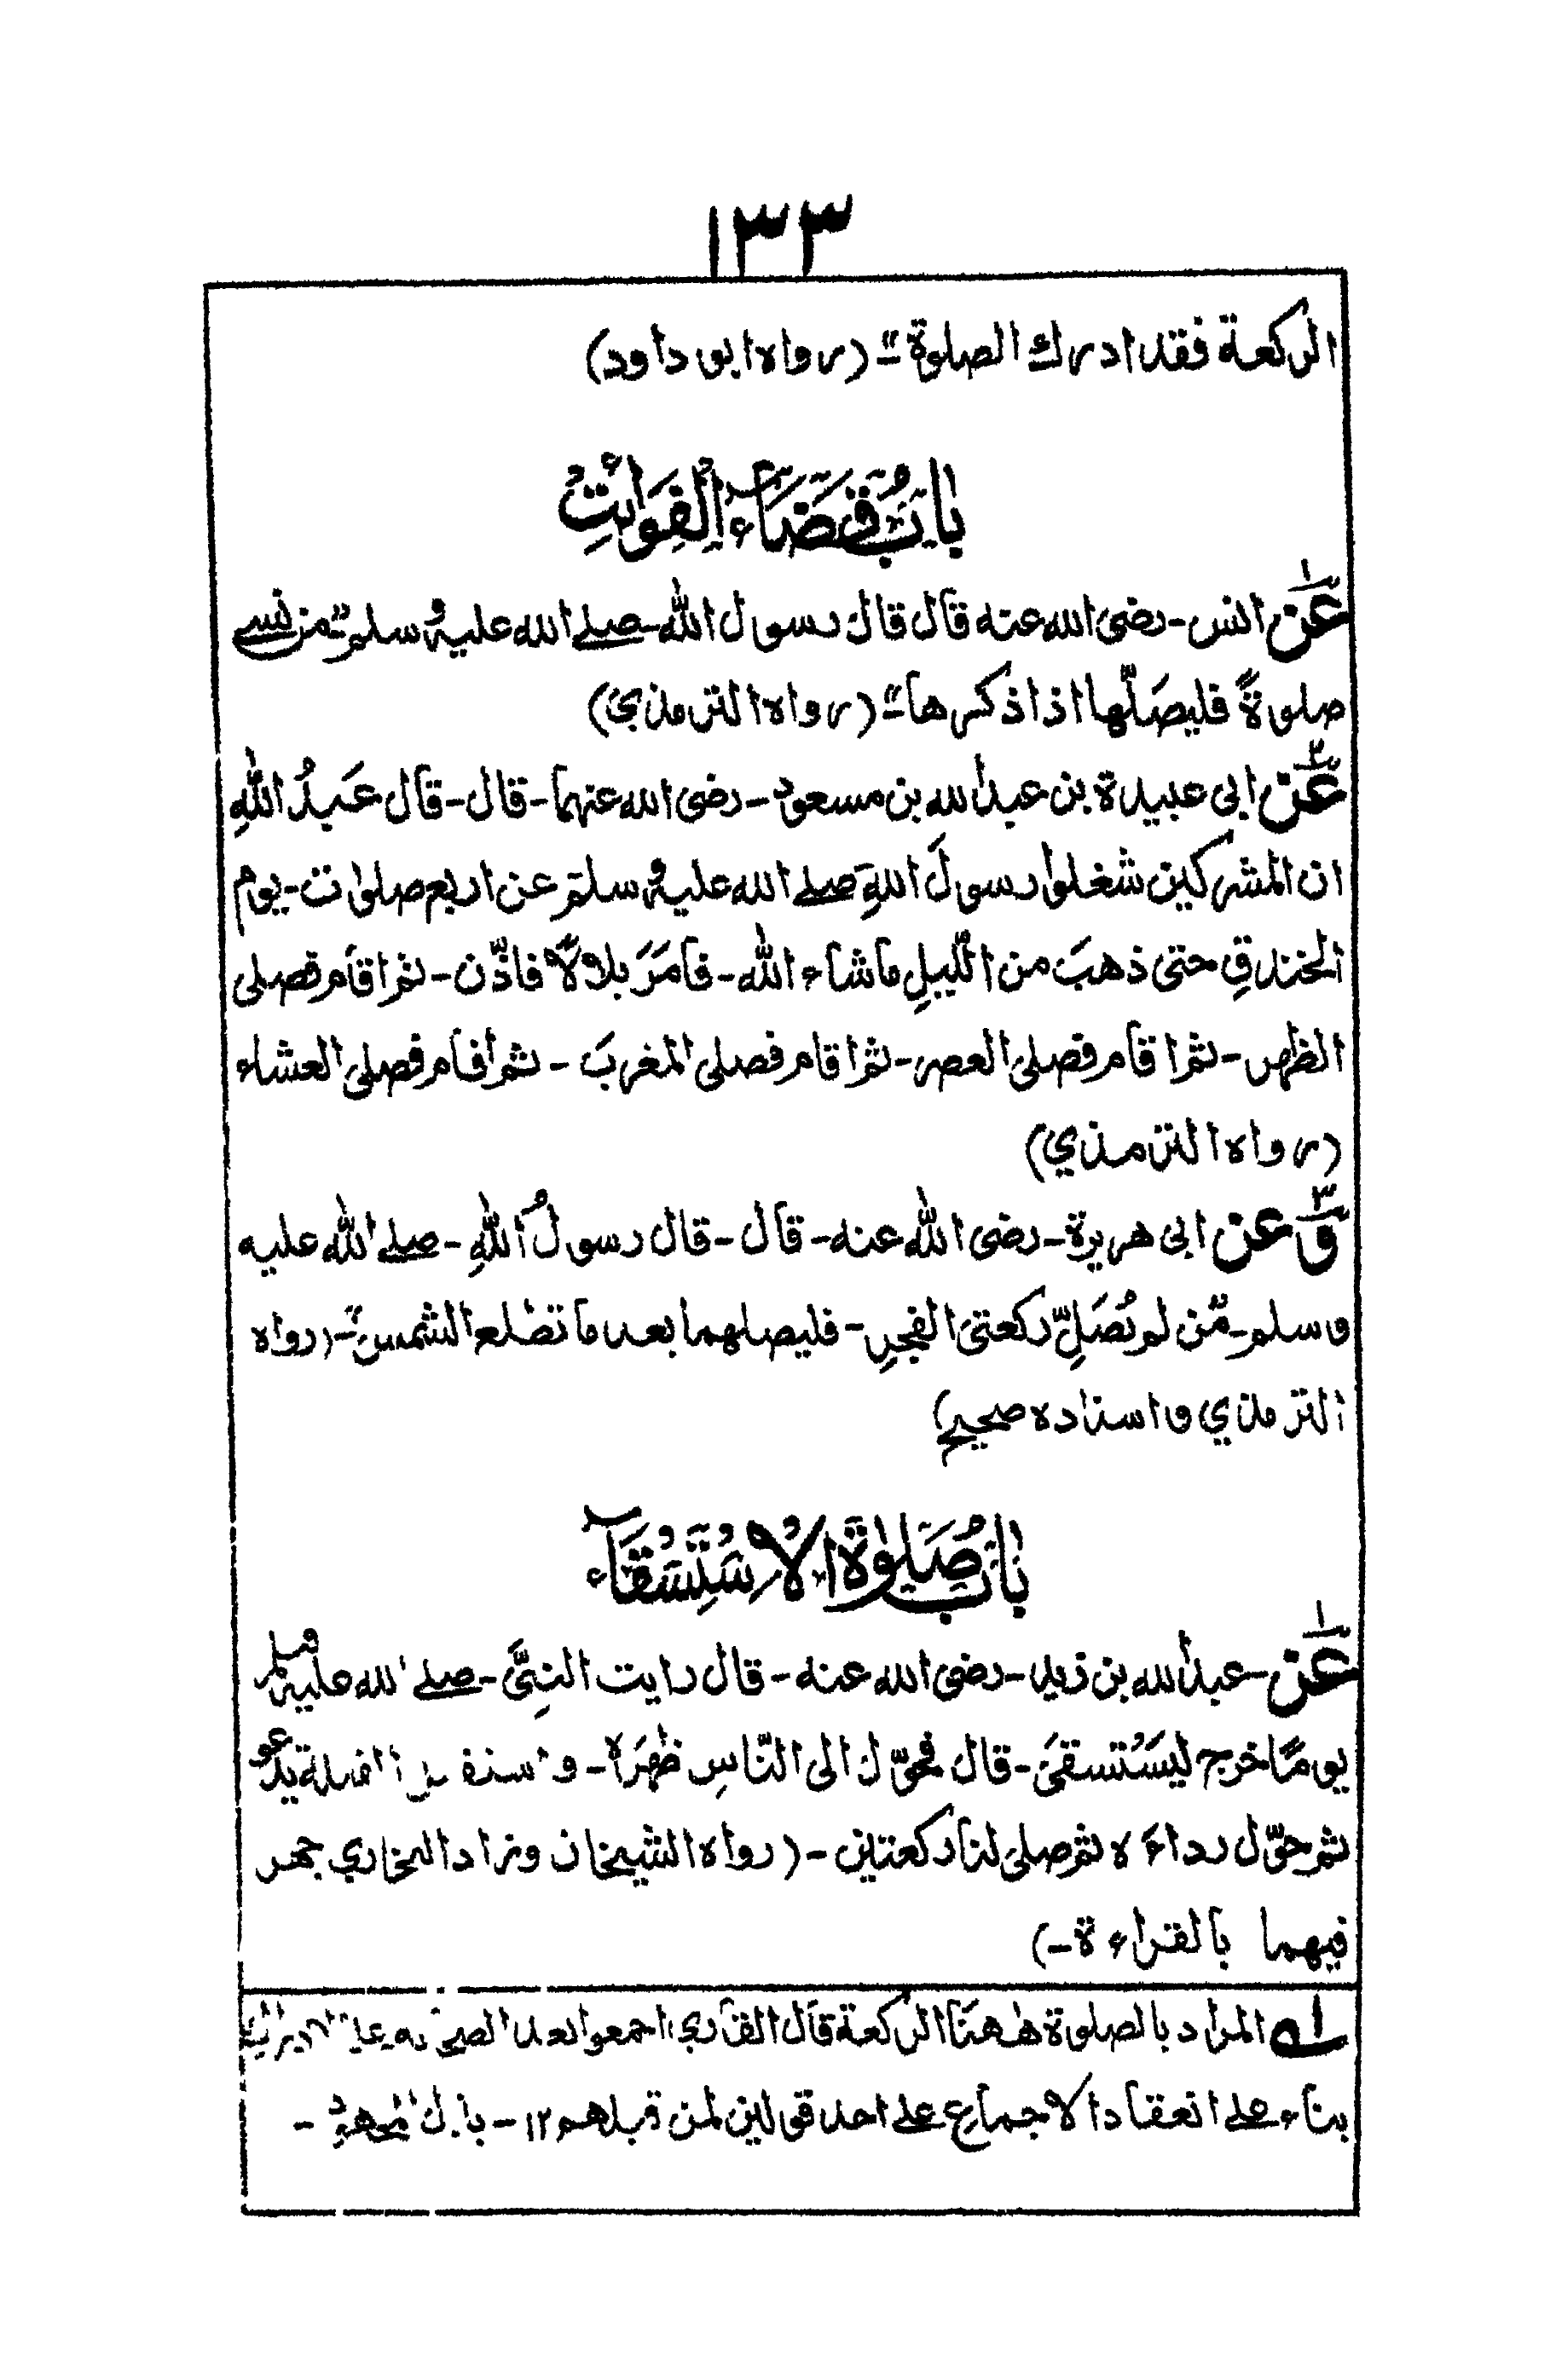 ١٣٣
الركعة فقد ادرك الصلوة"- (رواه ابو داود)
بَابُ قَضَآءِ الْفَوَائِتِ
١ عَن انس-رضى الله عنه قال قال رسول الله-صلے الله عليه وسلم-"من نسے
صلوةً فليصَلّها اذا ذكرها"- (رواه الترمذي)
٢ عَن ابى عبيدة بن عبد الله بن مسعود-رضى الله عنهما-قال-قال عَبدُ اللهِ
ان المشركين شغلوا رسولَ اللهِ صلے الله عليه وسلم عن اربع صلوٰات-يوم
الخندقِ حتى ذهبَ من اللّيلِ ما شاء الله-فامَرَ بلالاً فاذّن-ثم اقام فصلى
الظهر-ثم اقام فصلى العصر-ثم اقام فصلى المغربَ-ثم اقام فصلى العشاء
(رواه الترمذي)
٣ وَعن ابى هريرة-رضى الله عنه-قال-قال رسولُ اللهِ-صلے الله عليه
وسلم-"مَن لم يُصَلِّ ركعتى الفجرِ-فليصلهما بعد ما تطلع الشمس"-(رواه
الترمذي واسناده صحيح)
بَابُ صَلٰوةِ الْاِسْتِسْقَآءِ
١ عَن-عبد الله بن زيد-رضى الله عنه-قال رايت النبِىَّ-صلے الله عليه وسلم
يومًا خرج ليَسْتسقىَ-قال فحوّل الى النّاسِ ظهرَه-واستقبل القبلة يدعو
ثم حوّل رداءَه ثم صلى لنا ركعتين-(رواه الشيخان وزاد البخاري جهر
فيهما بالقراءة-)
لـه ١ المراد بالصلوة هٰهنا الركعة قال القاري: اجمعوا بعد الصحابه
بناء على انعقاد الاجماع على احد قولين لمن قبلهم ١٢-